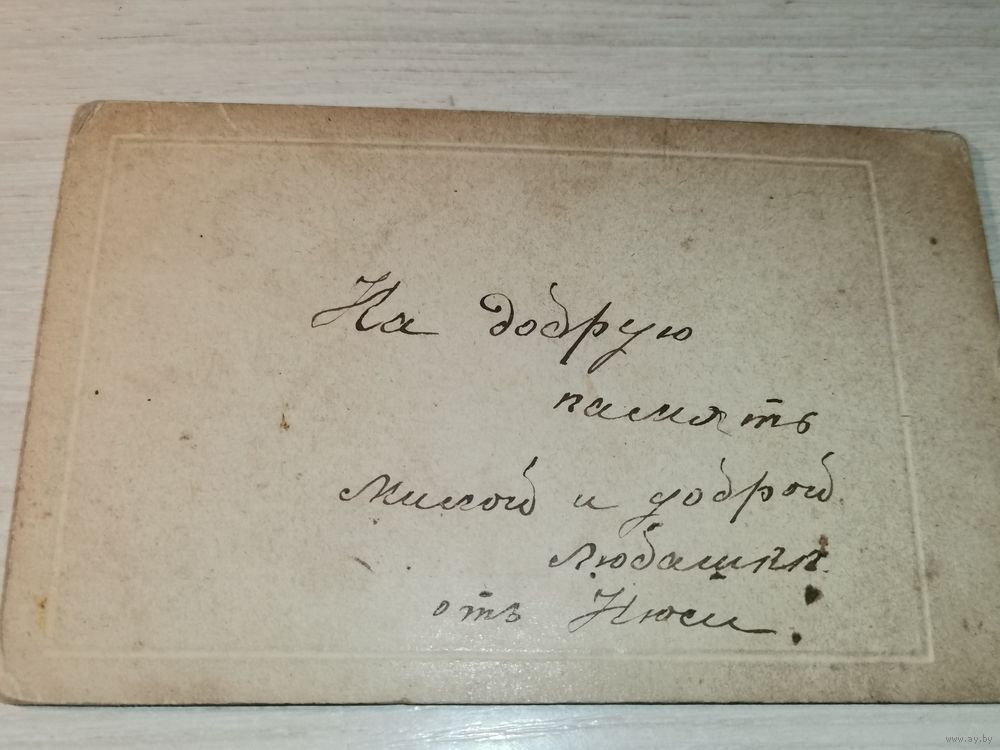 На добрую
память
милой и доброй
Любашки
отъ Нюси.
www.ay.by